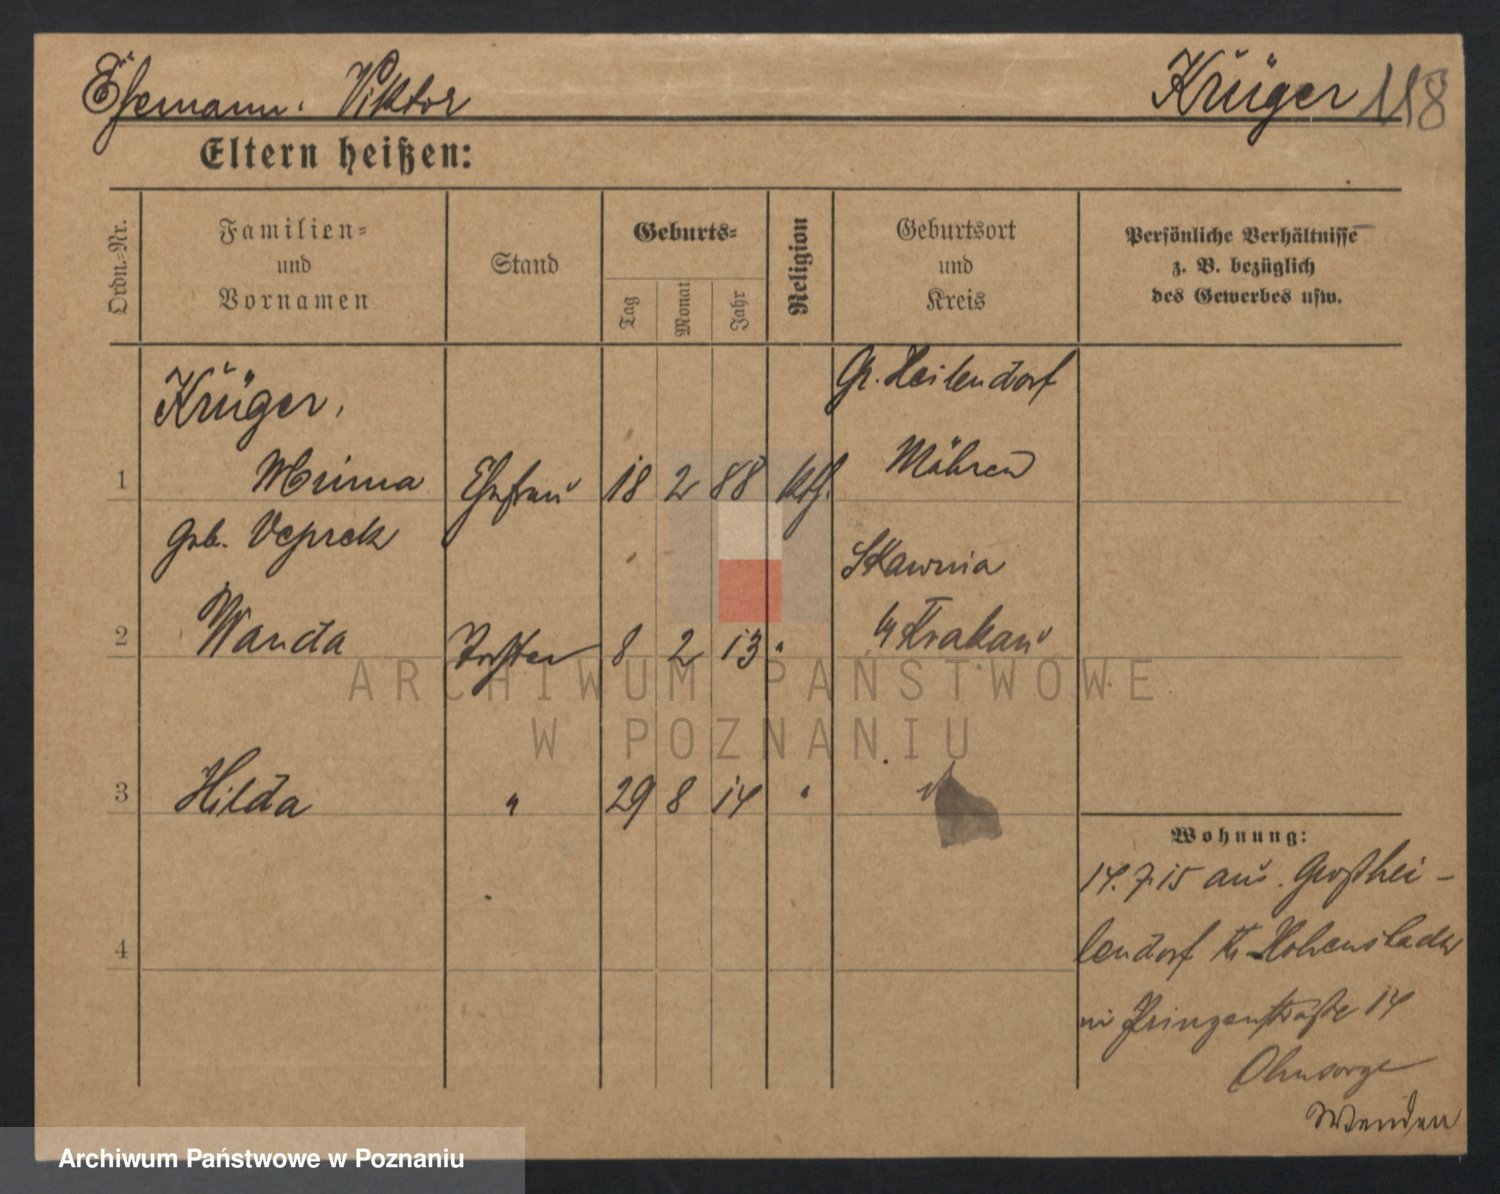 Ehemann: Viktor
Krüger 118
Eltern heißen:
Ordn.=Nr.
Familien=
und
Vornamen
Stand
Geburts=
Tag
Monat
Jahr
Religion
Geburtsort
und
Kreis
Persönliche Verhältnisse
z. B. bezüglich
des Gewerbes usw.
Krüger,
Gr. Heilendorf
1 Minna Ehefrau 18 2 88 kth. Mähren
geb. Veprek
Skawina
2 Wanda Tochter 8 2 13 " b/ Krakau
3 Hilda " 29 8 14 " "
Wohnung:
14.7.15 aus Großhei-
4
lendorf Kr. Hohenstadt
in Prinzenstraße 14
Ohnsorge
Wenden
ARCHIWUM PAŃSTWOWE
W POZNANIU
Archiwum Państwowe w Poznaniu